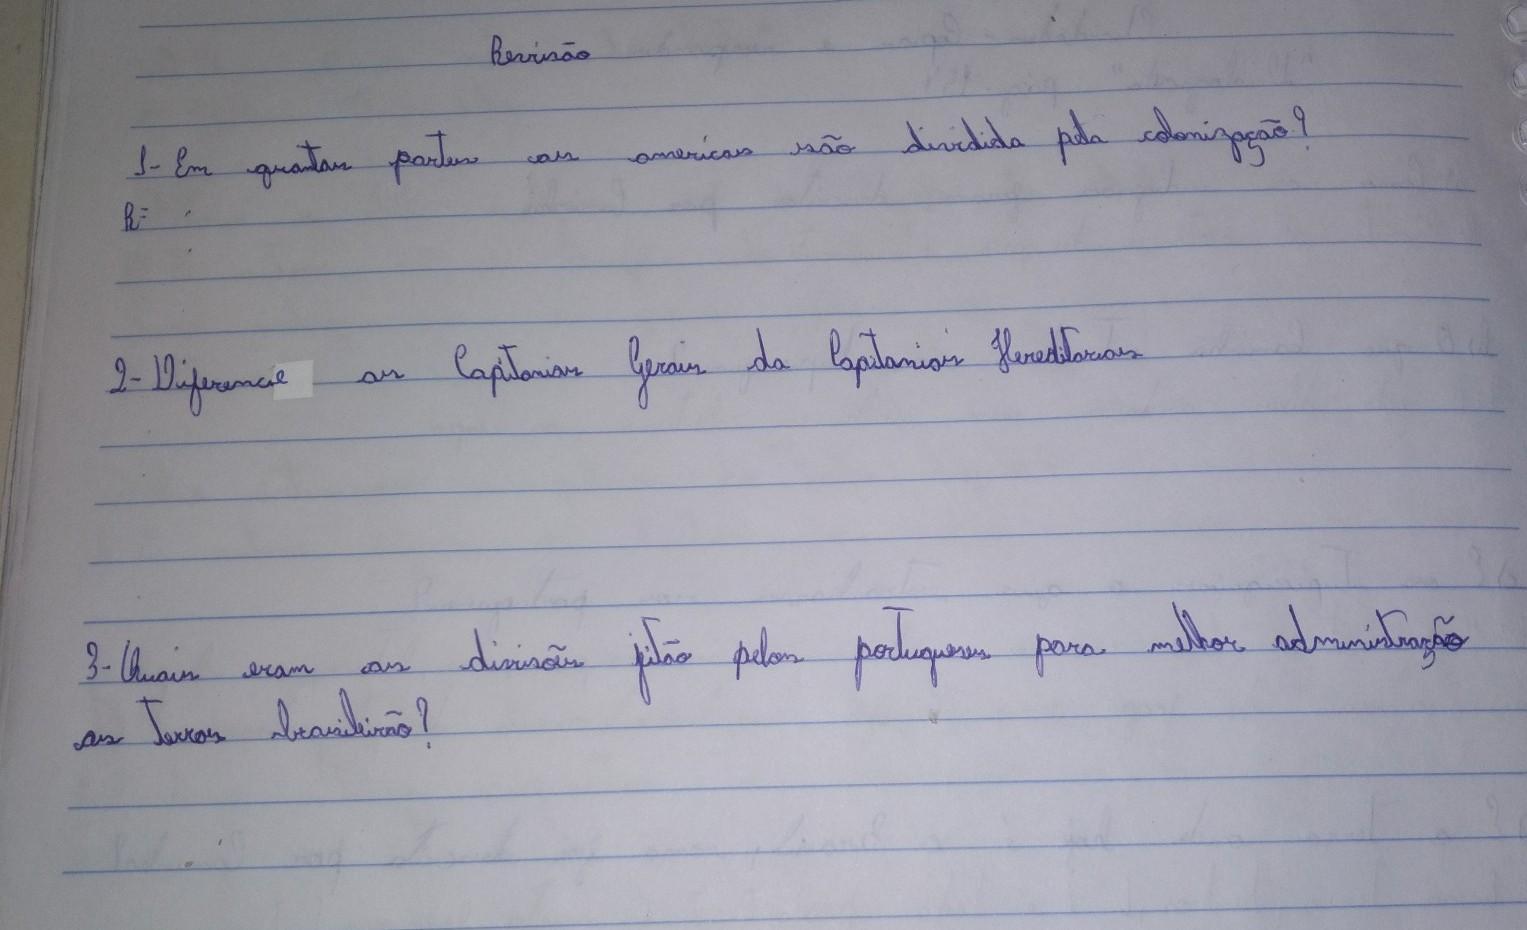 Revisão
1- Em quantas partes as americas são dividida pela colonização?
R=
2- Diferencie as Capitanias Gerais da Capitanias Hereditarias
3- Quais eram as divisões fitão pelos portugueses para melhor administração
as Terras brasileirão?